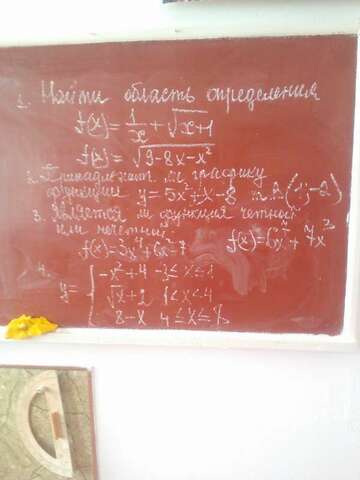 1. Найти область определения
f(x)=1/x+√x+1
f(x)=√9-8x-x²
2. Принадлежит ли графику
функции y=5x²+x-8 т.А(1;-2)
3. Является ли функция четной
или нечетной
f(x)=3x⁴+6x²-7 f(x)=6x⁷+7x³
4. y= { -x²+4 -3≤x≤1
√x+2 1<x<4
8-x 4≤x≤7